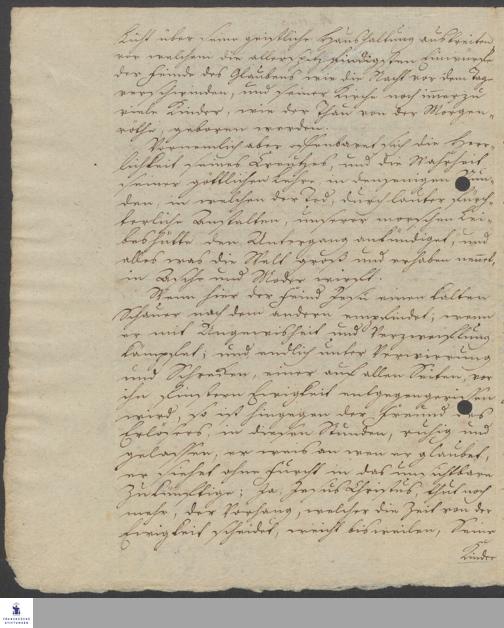 Licht über seine geistliche Haushaltung ausbreiten
vor welchem die allerspitzfindigsten Einwürfe
der Feinde des Glaubens wie die Nacht vor dem Tage
verschwinden, und seiner Kirche noch immerzu
viele Kinder, wie der Thau von der Morgen-
röthe, geboren werden.
Vornemlich aber offenbaret sich die Herr-
lichkeit seines Creutzes, und die Wahrheit
seiner göttlichen Lehre in denjenigen Stun-
den, in welchen der Tod, durch lauter fürch-
terliche Anstalten, unserer morschen Lei-
beshütte den Untergang ankündiget, und
alles was die Welt groß und erhaben nennet,
in Asche und Moder wirft.
Wenn hier der Feind Jesu einen kalten
Schauer nach dem andern empfindet; wenn
er mit Ungewisheit und Verzweiflung
kämpfet; und endlich unter Verwirrung
und Schrecken, einer auf allen Seiten, vor
ihn finstern Ewigkeit entgegengerissen
wird, so ist hingegen der Freund des
Erlösers, in diesen Stunden, ruhig und
gelassen; er weis an wen er glaubet,
er siehet ohne Furcht in das unsichtbare
Zukünftige; Ja, Jesus Christus, thut noch
mehr, der Vorhang, welcher die Zeit von der
Ewigkeit scheidet, weicht bisweilen, Seine
Kinder
FRANCKESCHE
STIFTUNGEN